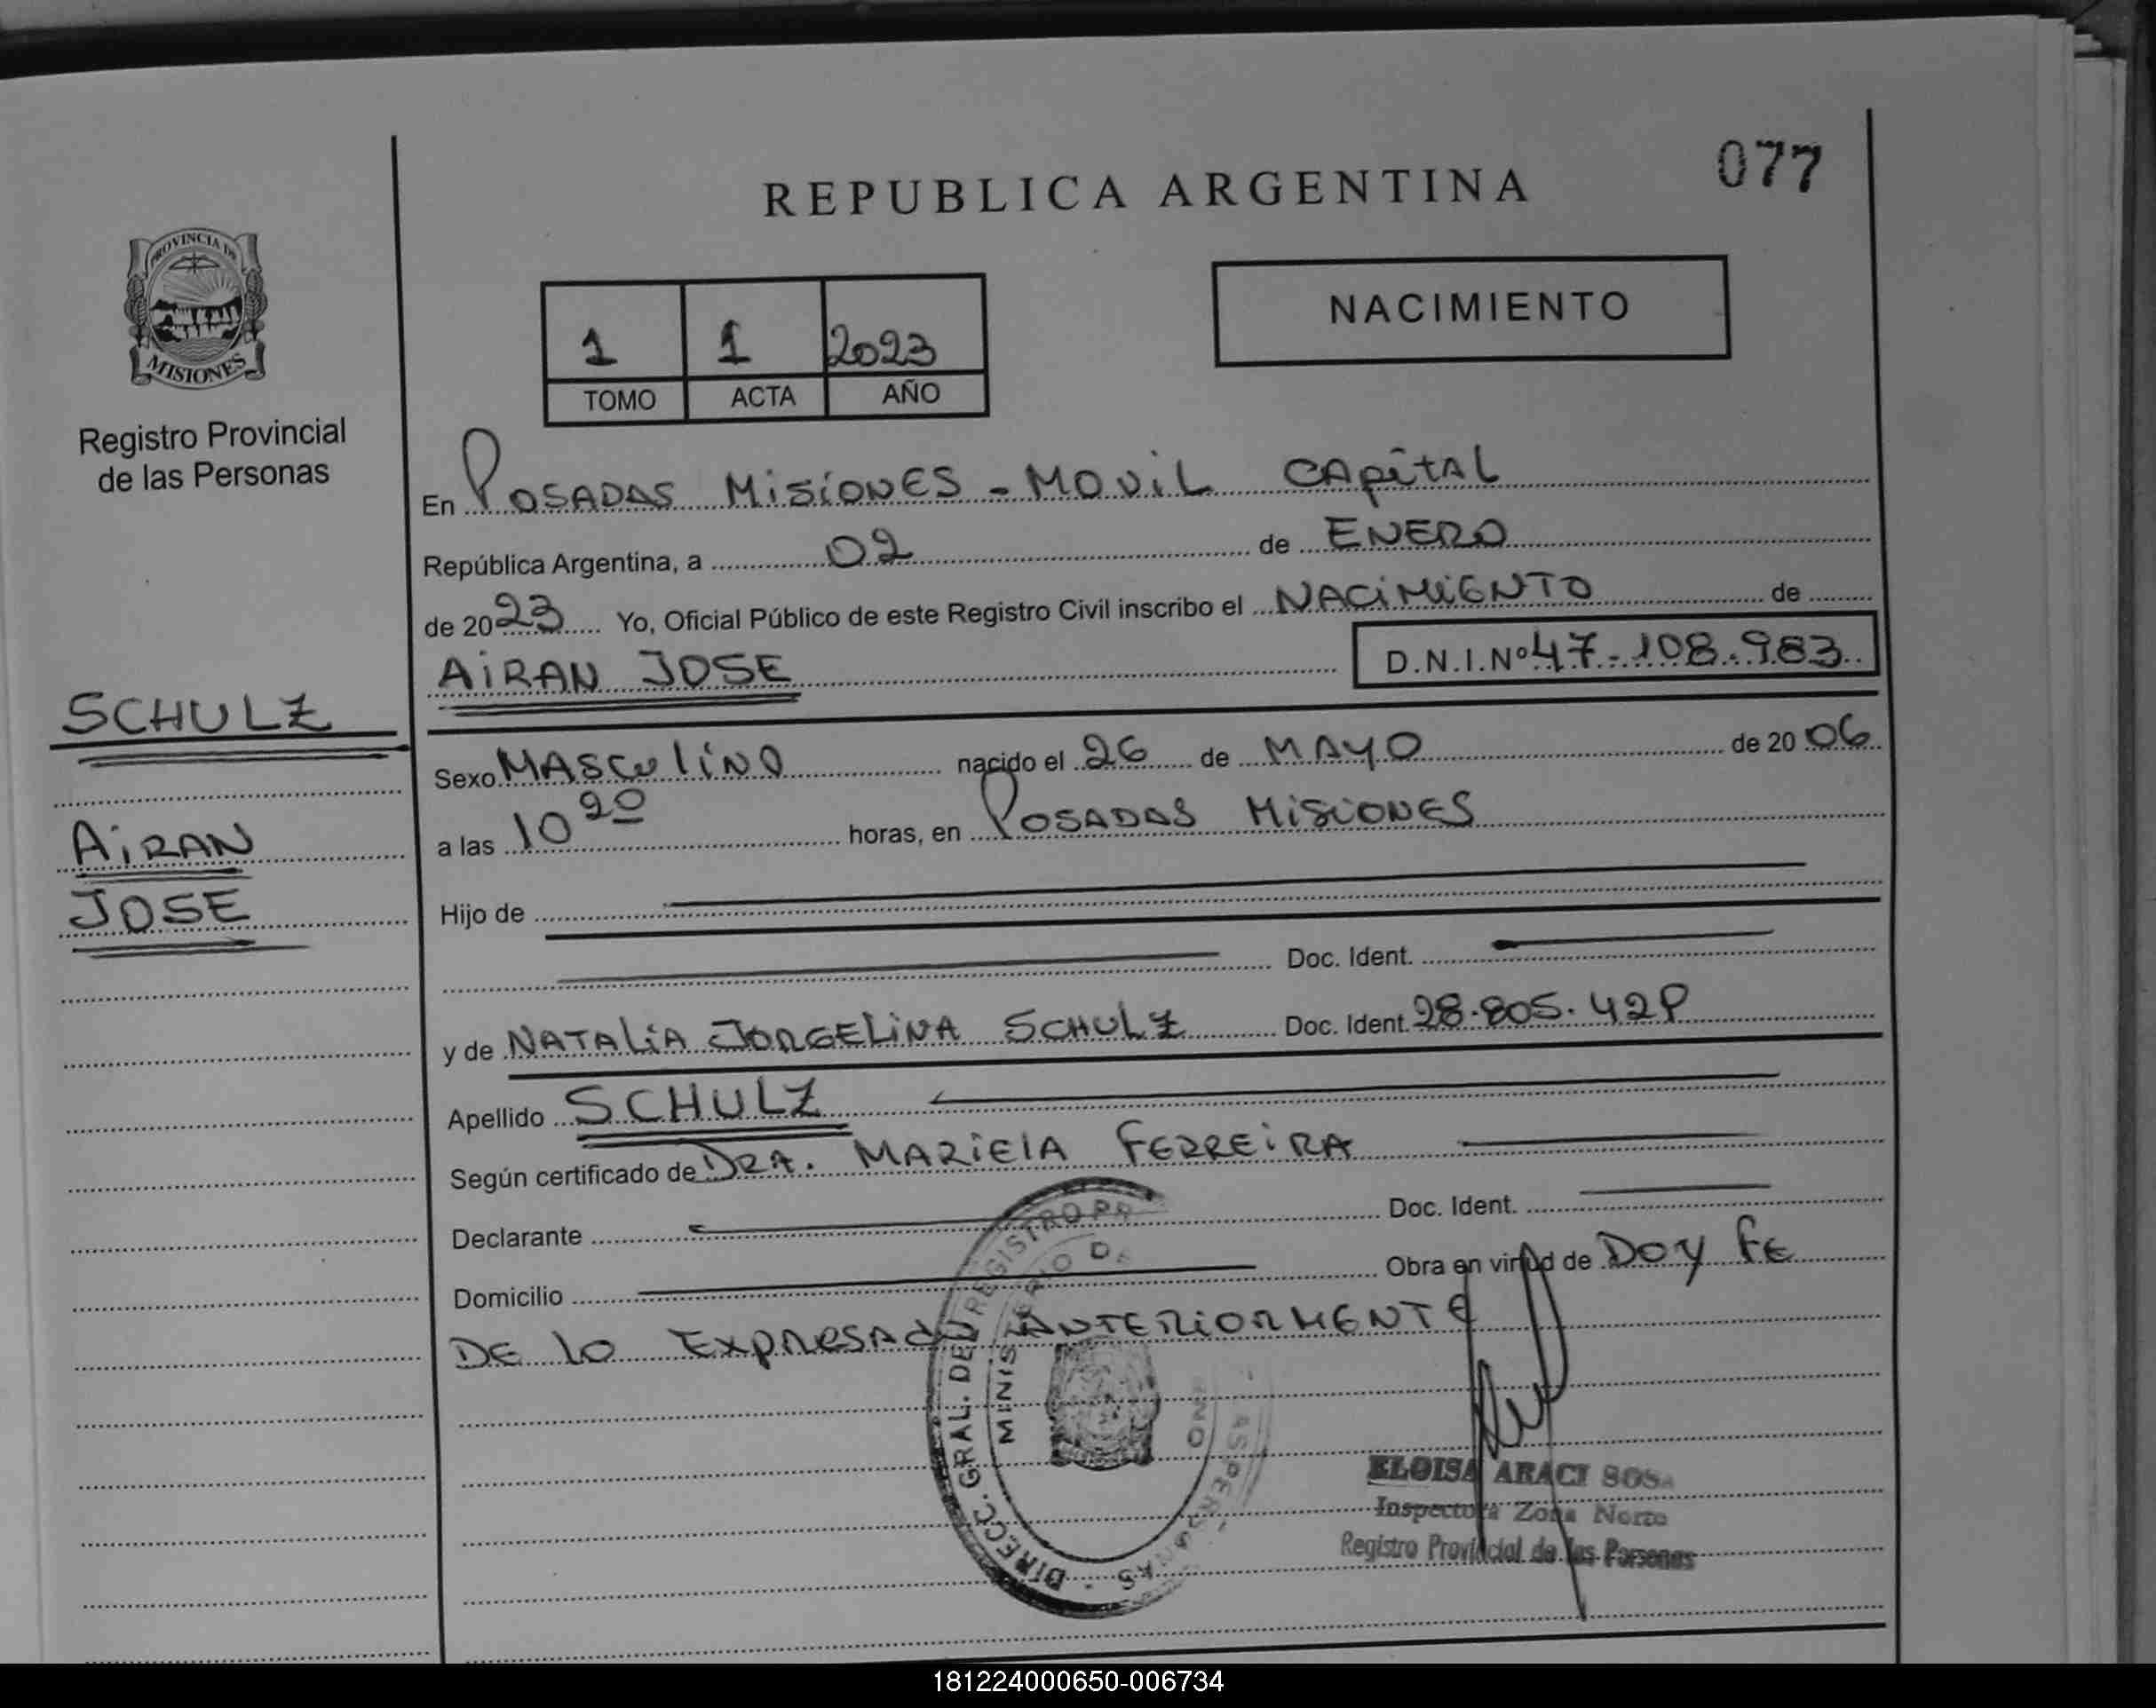 077
REPUBLICA ARGENTINA
PROVINCIA DE
MISIONES
Registro Provincial
de las Personas
1 1 2023
TOMO ACTA AÑO
NACIMIENTO
En POSADAS MISIONES - MOVIL CAPITAL
República Argentina, a 02 de ENERO
de 2023 Yo, Oficial Público de este Registro Civil inscribo el NACIMIENTO de
AIRAN JOSE D.N.I.Nº 47-108.983
SCHULZ
AIRAN
JOSE
Sexo MASCULINO nacido el 26 de MAYO de 2006
a las 10 20 horas, en POSADAS MISIONES
Hijo de
Doc. Ident.
y de NATALIA JORGELINA SCHULZ Doc. Ident. 28.805.429
Apellido SCHULZ
Según certificado de DRA. MARIELA FERREIRA
Declarante Doc. Ident.
Domicilio Obra en virtud de DOY FE
DE LO EXPRESADO ANTERIORMENTE
DIRECC. GRAL. DEL REGISTRO
ELOISA ARACI SOSA
Inspectora Zona Norte
Registro Provincial de las Personas
181224000650-006734